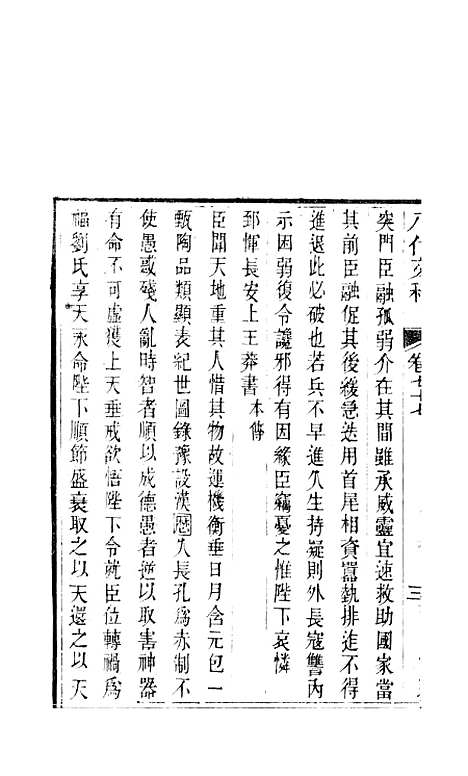 八代文粹 卷七十七 三
突門臣融孤弱介在其間雖承威靈宜速救助國家當
其前臣融促其後緩急迭用首尾相資囂埶排迮不得
進退此必破也若兵不早進久生持疑則外長寇讐內
示困弱復令讒邪得有因緣臣竊憂之惟陛下哀憐
郅惲長安上王莽書本傳
臣聞天地重其人惜其物故運機衡垂日月含元包一
甄陶品類顯表紀世圖錄豫設漢歷久長孔爲赤制不
使愚惑殘人亂時智者順以成德愚者逆以取害神器
有命不可虛獲上天垂戒欲悟陛下令就臣位轉禍爲
福劉氏享天永命陛下順節盛衰取之以天還之以天